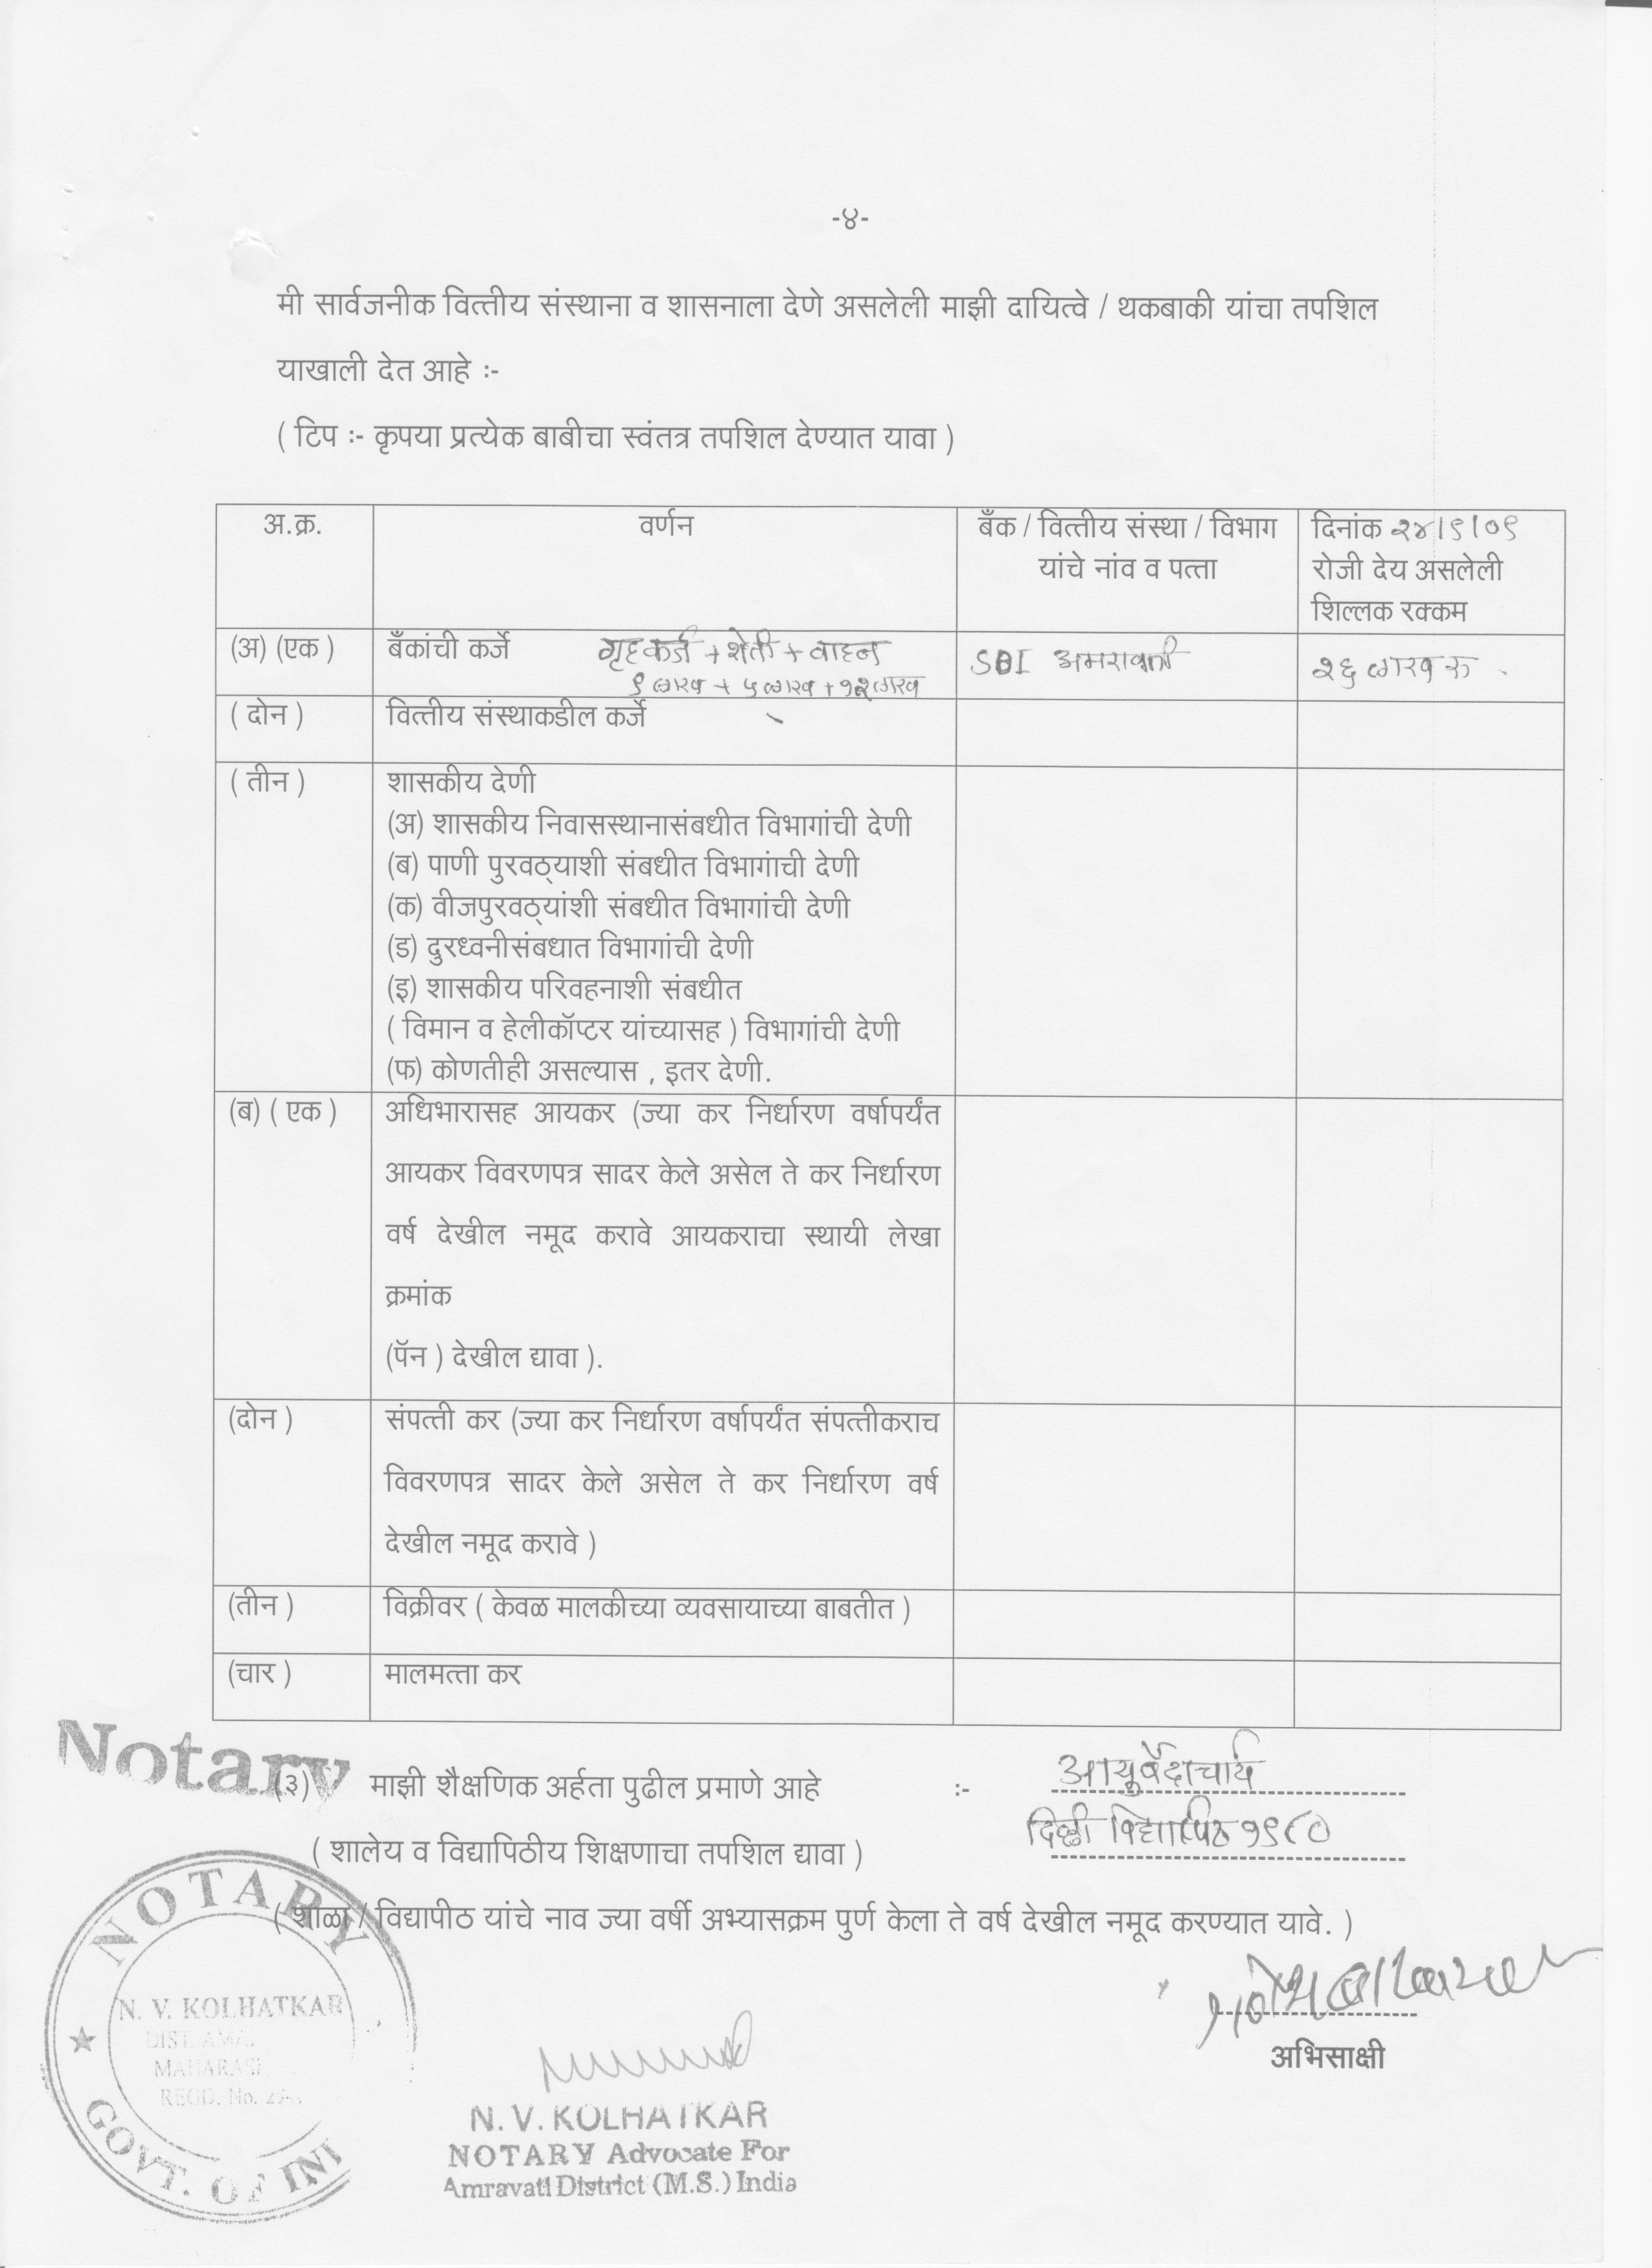 -४-
मी सार्वजनीक वित्तीय संस्थाना व शासनाला देणे असलेली माझी दायित्वे / थकबाकी यांचा तपशिल
याखाली देत आहे :-
( टिप :- कृपया प्रत्येक बाबीचा स्वंतत्र तपशिल देण्यात यावा )
अ.क्र. वर्णन बँक / वित्तीय संस्था / विभाग दिनांक २४/९/०९
यांचे नांव व पत्ता रोजी देय असलेली
शिल्लक रक्कम
(अ) (एक ) बँकांची कर्जे गृहकर्ज + शेती + वाहन SBI अमरावती २६ लाख रु .
९ लाख + ५ लाख + १२ लाख
( दोन ) वित्तीय संस्थाकडील कर्जे
( तीन ) शासकीय देणी
(अ) शासकीय निवासस्थानासंबधीत विभागांची देणी
(ब) पाणी पुरवठ्याशी संबधीत विभागांची देणी
(क) वीजपुरवठ्यांशी संबधीत विभागांची देणी
(ड) दुरध्वनीसंबधात विभागांची देणी
(इ) शासकीय परिवहनाशी संबधीत
( विमान व हेलीकॉप्टर यांच्यासह ) विभागांची देणी
(फ) कोणतीही असल्यास , इतर देणी.
(ब) ( एक ) अधिभारासह आयकर (ज्या कर निर्धारण वर्षापर्यंत
आयकर विवरणपत्र सादर केले असेल ते कर निर्धारण
वर्ष देखील नमूद करावे आयकराचा स्थायी लेखा
क्रमांक
(पॅन ) देखील द्यावा ).
(दोन ) संपत्ती कर (ज्या कर निर्धारण वर्षापर्यंत संपत्तीकराच
विवरणपत्र सादर केले असेल ते कर निर्धारण वर्ष
देखील नमूद करावे )
(तीन ) विक्रीवर ( केवळ मालकीच्या व्यवसायाच्या बाबतीत )
(चार ) मालमत्ता कर
Notary
(३) माझी शैक्षणिक अर्हता पुढील प्रमाणे आहे :- आयुर्वेदाचार्य
( शालेय व विद्यापिठीय शिक्षणाचा तपशिल द्यावा ) दिल्ली विद्यापिठ १९८०
( शाळा / विद्यापीठ यांचे नाव ज्या वर्षी अभ्यासक्रम पुर्ण केला ते वर्ष देखील नमूद करण्यात यावे. )
अभिसाक्षी
NOTARY
N. V. KOLHATKAR
DIST. AMA.
MAHARASH
REGD. No.
GOVT. OF INI
N. V. KOLHATKAR
NOTARY Advocate For
Amravati District (M.S.) India